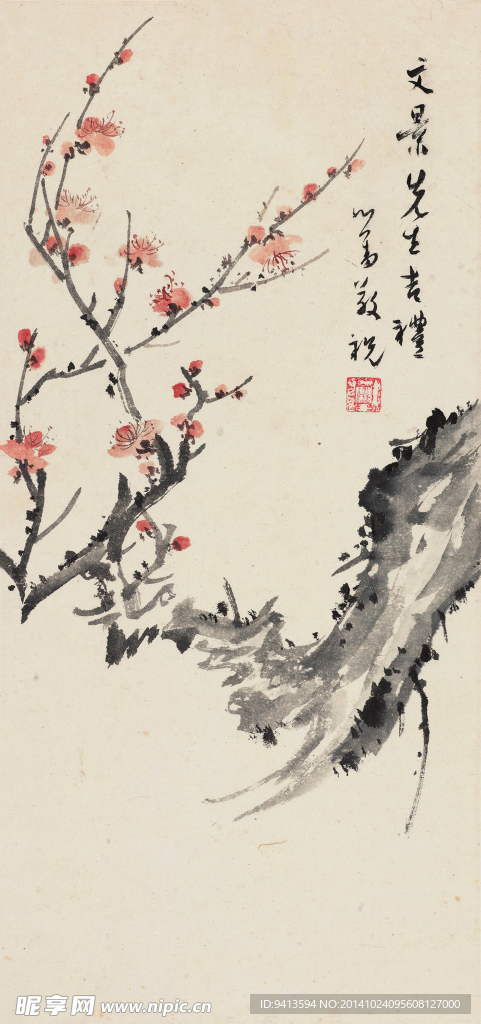 文景先生吉禮
心畬敬祝
昵享网 www.nipic.cn
ID:9413594 NO:20141024095608127000